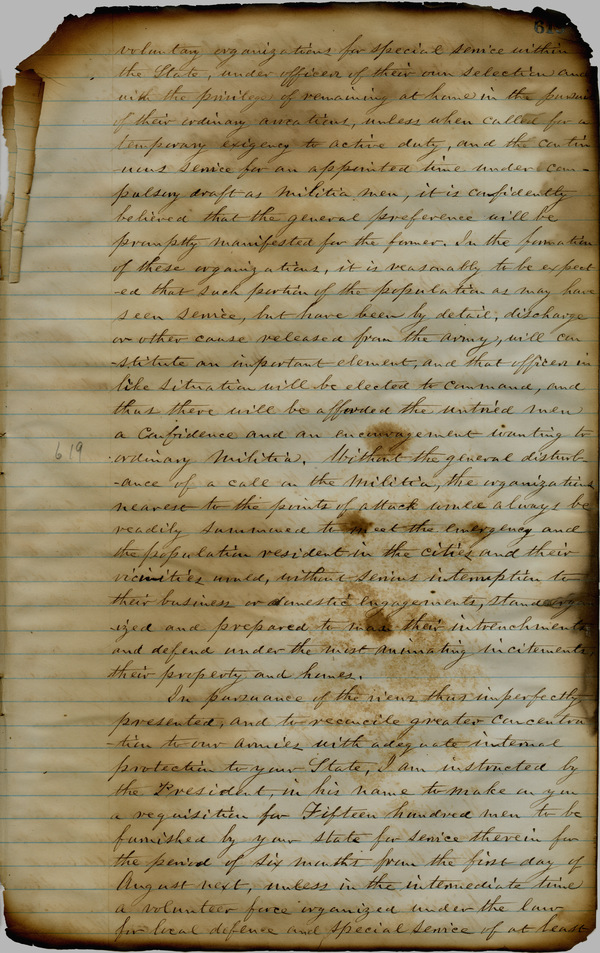 voluntary organizations for special service within
the State, under officers of their own selection and
with the privilege of remaining at home in the pursuit
of their ordinary avocations, unless when called for a
temporary exigency to active duty, and the contin
uous service for an appointed time under com-
pulsory draft as militia men, it is confidently
believed that the general preference will be
promptly manifested for the former. In the formation
of these organizations, it is reasonably to be expect
-ed that such portion of the population as may have
seen service, but have been by detail, discharge
or other cause released from the army, will con
-stitute an important element, and that officers in
like situation will be elected to command, and
thus there will be afforded the untried men
a confidence and an encouragement wanting to
619
ordinary militia. Without the general disturb-
-ance of a call on the militia, the organizations
nearest to the points of attack would always be
readily summoned to meet the emergency and
the population resident in the cities and their
vicinities would, without serious interruption to
their business or domestic engagements, stand organ
ized and prepared to man their intrenchments
and defend under the most animating incitements,
their property and homes.
In pursuance of the views thus imperfectly
presented, and to reconcile greater concentra
-tion to our armies with adequate internal
protection to your State, I am instructed by
the President, in his name to make on you
a requisition for Fifteen hundred men to be
furnished by your state for service therein for
the period of six months from the first day of
August next, unless in the intermediate time
a volunteer force organized under the law
for local defence and special service of at least